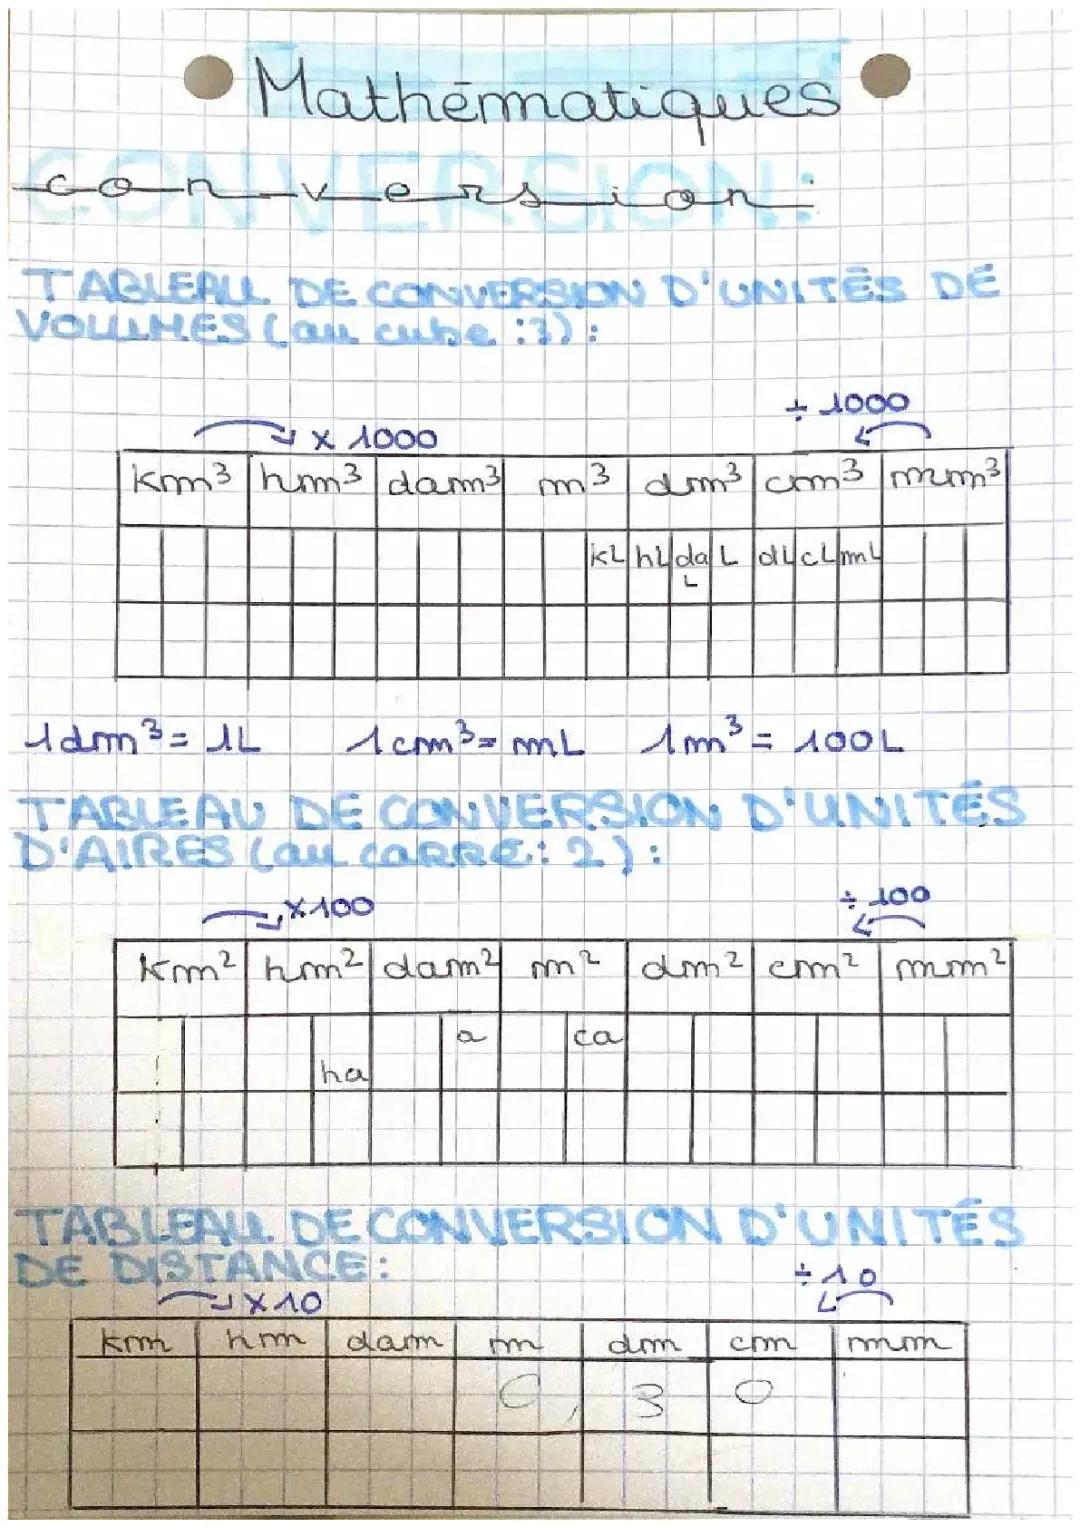 Mathématiques
CONVERSION:
conversion:
TABLEAU DE CONVERSION D'UNITÉS DE
VOLUMES (au cube :3):
÷ 1000
× 1000
km³ hm³ dam³ m³ dm³ cm³ mm³
kL hL daL L dL cL mL
1dm³ = 1L 1cm³ = mL 1m³ = 100L
TABLEAU DE CONVERSION D'UNITÉS
D'AIRES (au CARRÉ: 2):
×100 ÷ 100
km² hm² dam² m² dm² cm² mm²
a ca
ha
TABLEAU DE CONVERSION D'UNITÉS
DE DISTANCE:
÷10
×10
km hm dam m dm cm mm
0, 3 0